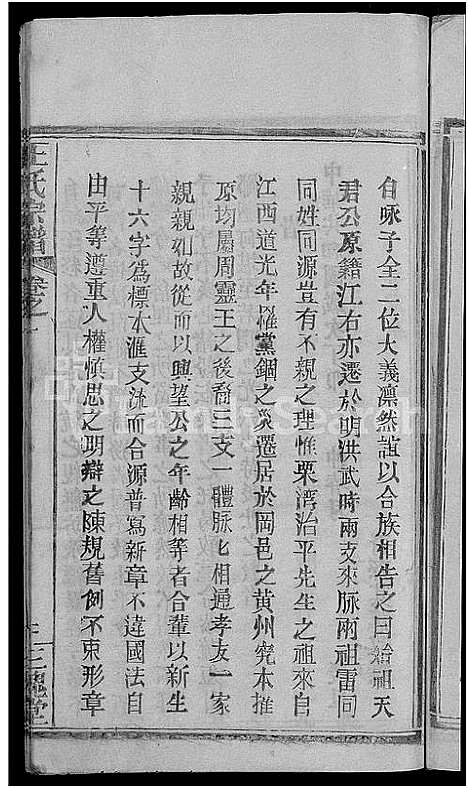 自咏予全二位大義凛然誼以合族相告之曰始祖天
君公原籍江右亦遷於明洪武時兩支來脉兩祖雷同
同姓同源豈有不親之理惟栗湾治平先生之祖來自
江西道光年罹黨錮之災遷居於岡邑之黄州究本推
原均屬周靈王之後裔三支一體脉匕相通孝友一家
親親如故從而以興望公之年齡相等者合輩以新生
十六字爲標水滙支流而合源普寫新章不違國法自
由平等遵重人權慎思之明辯之陳規舊例不束形章
王氏宗譜 卷之一
三槐堂
FamilySearch